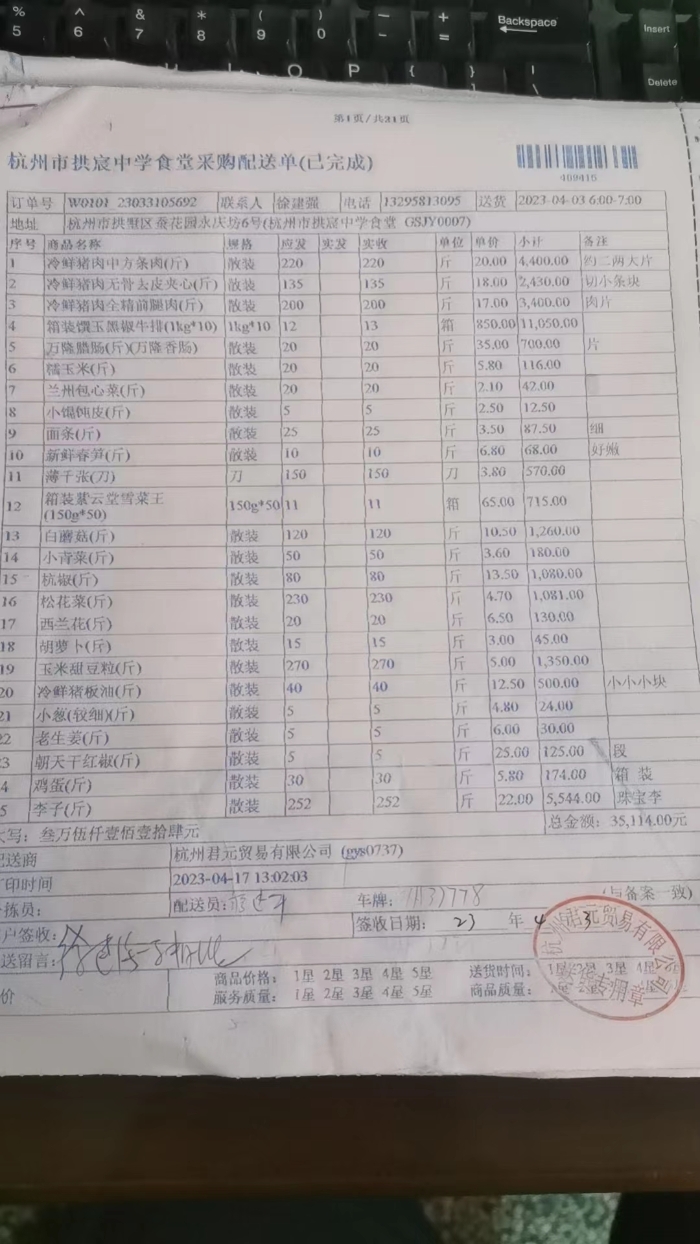 % ^ & * ( ) — + Backspace Insert
5 6 7 8 9 0 - =
O P { } Delete
第1页/共21页
杭州市拱宸中学食堂采购配送单(已完成)
409415
订单号 W0101 23033105692 联系人 徐建强 电话 13295813095 送货 2023-04-03 6:00-7:00
地址 杭州市拱墅区蚕花园永庆坊6号(杭州市拱宸中学食堂 GSJY0007)
序号 商品名称 规格 应发 实发 实收 单位 单价 小计 备注
1 冷鲜猪肉中方条肉(斤) 散装 220 220 斤 20.00 4,400.00 约二两大片
2 冷鲜猪肉无骨去皮夹心(斤) 散装 135 135 斤 18.00 2,430.00 切小条块
3 冷鲜猪肉全精前腿肉(斤) 散装 200 200 斤 17.00 3,400.00 肉片
4 箱装馔玉黑椒牛排(1kg*10) 1kg*10 12 13 箱 850.00 11,050.00
5 万隆腊肠(斤)(万隆香肠) 散装 20 20 斤 35.00 700.00 片
6 糯玉米(斤) 散装 20 20 斤 5.80 116.00
7 兰州包心菜(斤) 散装 20 20 斤 2.10 42.00
8 小馄饨皮(斤) 散装 5 5 斤 2.50 12.50
9 面条(斤) 散装 25 25 斤 3.50 87.50 细
10 新鲜春笋(斤) 散装 10 10 斤 6.80 68.00 好嫩
11 薄千张(刀) 刀 150 150 刀 3.80 570.00
12 箱装紫云堂雪菜王(150g*50) 150g*50 11 11 箱 65.00 715.00
13 白蘑菇(斤) 散装 120 120 斤 10.50 1,260.00
14 小青菜(斤) 散装 50 50 斤 3.60 180.00
15 杭椒(斤) 散装 80 80 斤 13.50 1,080.00
16 松花菜(斤) 散装 230 230 斤 4.70 1,081.00
17 西兰花(斤) 散装 20 20 斤 6.50 130.00
18 胡萝卜(斤) 散装 15 15 斤 3.00 45.00
19 玉米甜豆粒(斤) 散装 270 270 斤 5.00 1,350.00
20 冷鲜猪板油(斤) 散装 40 40 斤 12.50 500.00 小小小块
21 小葱(较细)(斤) 散装 5 5 斤 4.80 24.00
2 老生姜(斤) 散装 5 5 斤 6.00 30.00
3 朝天干红椒(斤) 散装 5 5 斤 25.00 125.00 段
4 鸡蛋(斤) 散装 30 30 斤 5.80 174.00 箱 装
5 李子(斤) 散装 252 252 斤 22.00 5,544.00 珠宝李
大写: 叁万伍仟壹佰壹拾肆元 总金额: 35,114.00元
配送商 杭州君元贸易有限公司 (gys0737)
印时间 2023-04-17 13:02:03
拣员: 配送员: 车牌: (与备案一致)
户签收: 签收日期: 23 年 4 3
送留言:
价 商品价格: 1星 2星 3星 4星 5星 送货时间: 1星 2星 3星 4星
服务质量: 1星 2星 3星 4星 5星 商品质量:
杭州君元贸易有限公司
专用章